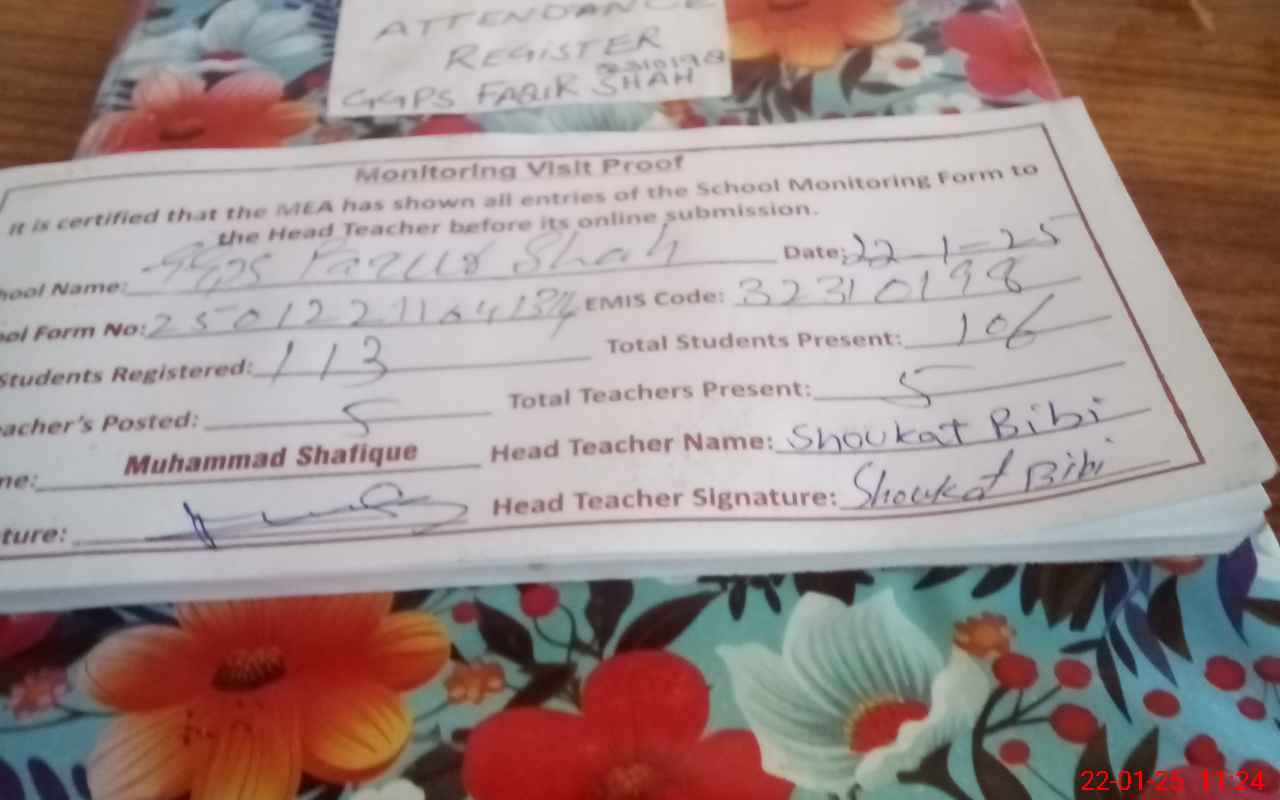 ATTENDANCE
REGISTER
32310198
GGPS FAQIR SHAH
Monitoring Visit Proof
It is certified that the MEA has shown all entries of the School Monitoring Form to
the Head Teacher before its online submission.
hool Name: GGPS Shah Date: 22-1-25
ool Form No: EMIS Code: 32310198
Students Registered: 113 Total Students Present: 106
eacher's Posted: 5 Total Teachers Present: 5
me: Muhammad Shafique Head Teacher Name: Shoukat Bibi
ture: Head Teacher Signature: Shoukat Bibi
22-01-25 11:24